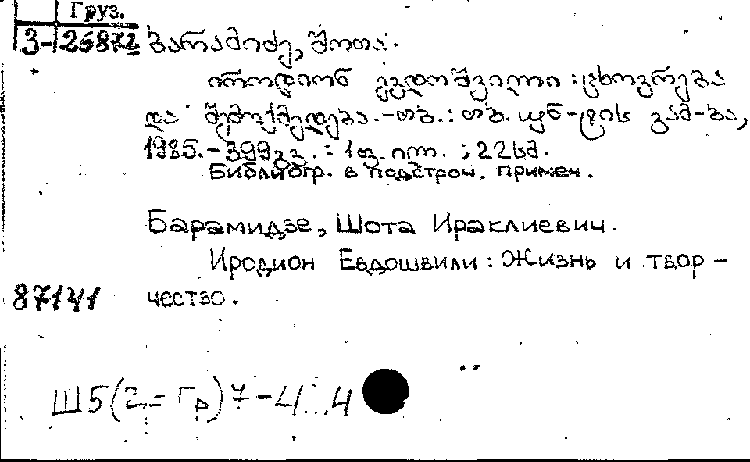 Груз.
3-26872 ბარამიძე, შოთა.
იროდიონ ევდოშვილი : ცხოვრება
და შემოქმედება. - თბ. : თბ. უნ-ტის გამ-ბა,
1985. - 399 გვ. : 1 ფ. ილ. ; 22 სმ.
Библиогр. в подстроч. примеч.
Барамидзе, Шота Ираклиевич.
Иродион Евдошвили : Жизнь и твор-
87141 чество.
Ш5(2=Гр)7-4 .4